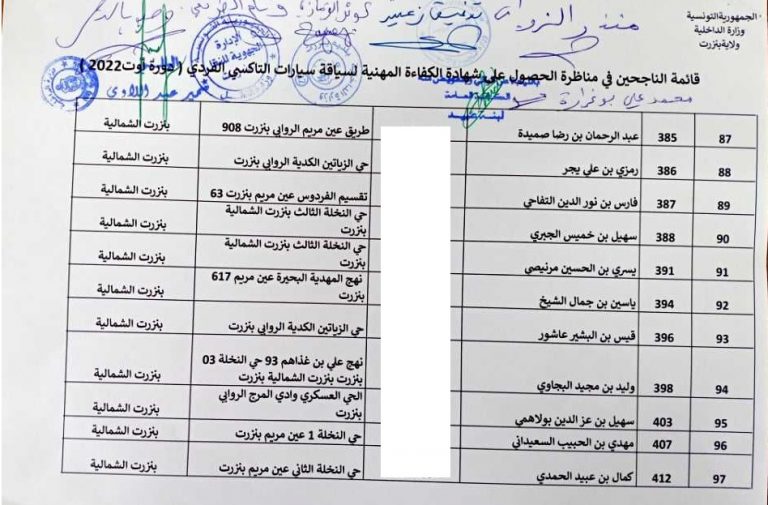 الجمهورية التونسية
وزارة الداخلية
ولاية بنزرت
قائمة الناجحين في مناظرة الحصول على شهادة الكفاءة المهنية لسياقة سيارات التاكسي الفردي ( دورة أوت2022 )
محمد علي بوغرارة
87 385 عبد الرحمان بن رضا صميدة طريق عين مريم الروابي بنزرت 908 بنزرت الشمالية
88 386 رمزي بن علي يجر حي الزياتين الكدية الروابي بنزرت بنزرت الشمالية
89 387 فارس بن نور الدين التفاحي تقسيم الفردوس عين مريم بنزرت 63 بنزرت الشمالية
90 388 سهيل بن خميس الجبري حي النخلة الثالث بنزرت الشمالية
بنزرت بنزرت الشمالية
91 391 يسري بن الحسين مرنيصي حي النخلة الثالث بنزرت الشمالية
بنزرت بنزرت الشمالية
92 394 ياسين بن جمال الشيخ نهج المهدية البحيرة عين مريم 617
بنزرت بنزرت الشمالية
93 396 قيس بن البشير عاشور حي الزياتين الكدية الروابي بنزرت بنزرت الشمالية
94 398 وليد بن مجيد البجاوي نهج علي بن غذاهم 93 حي النخلة 03
بنزرت بنزرت الشمالية بنزرت بنزرت الشمالية
95 403 سهيل بن عز الدين بولاهمي الحي العسكري وادي المرج الروابي
بنزرت بنزرت الشمالية
96 407 مهدي بن الحبيب السعيداني حي النخلة 1 عين مريم بنزرت بنزرت الشمالية
97 412 كمال بن عبيد الحمدي حي النخلة الثاني عين مريم بنزرت بنزرت الشمالية